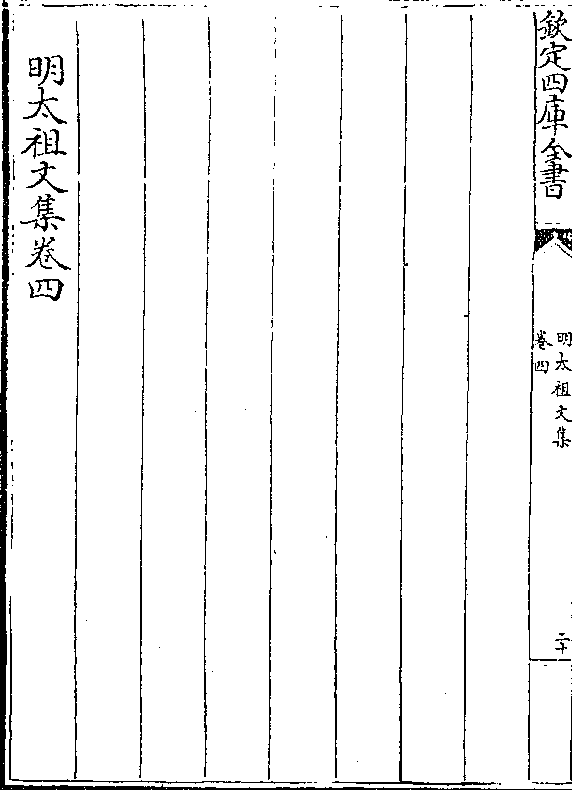 欽定四庫全書
明太祖文集
卷四
二十
明太祖文集卷四